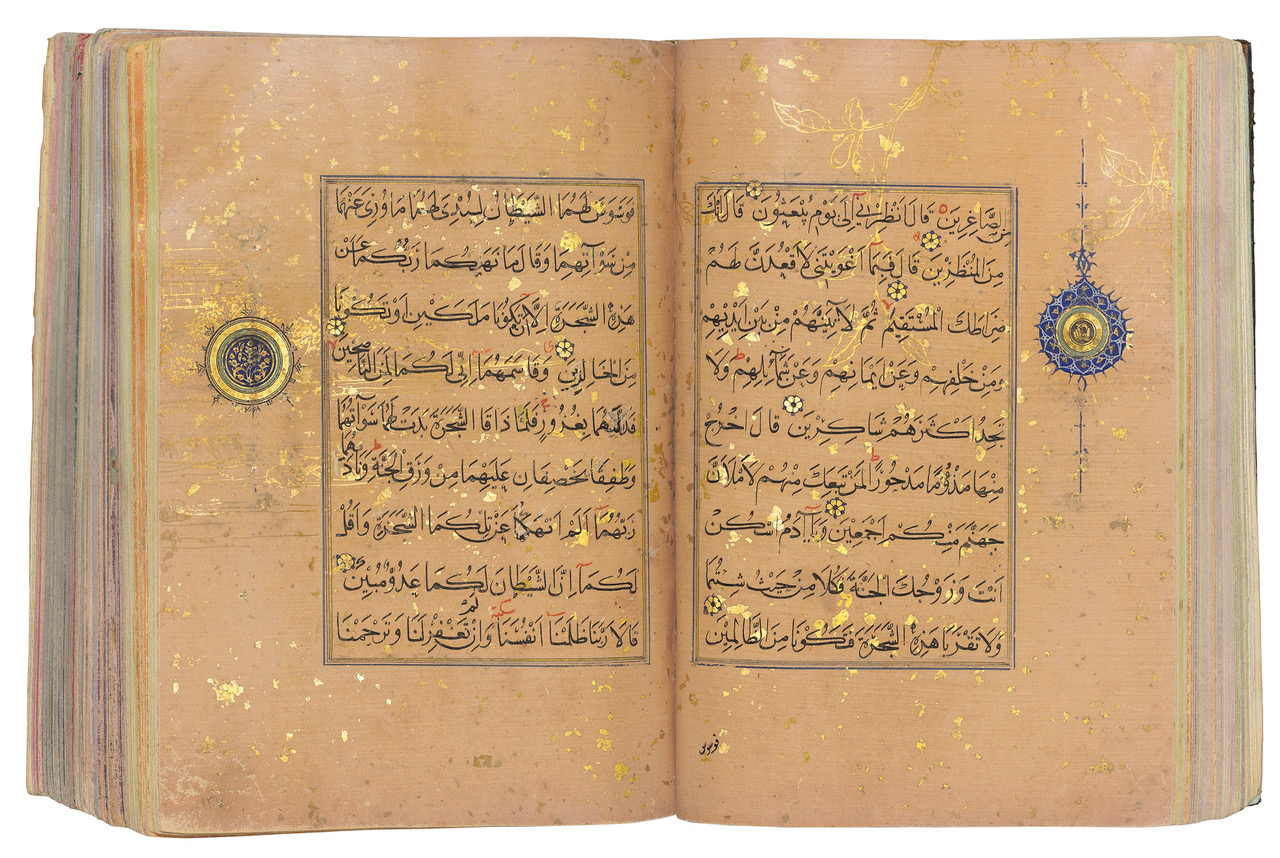 مِنَ الصَّاغِرِينَ قَالَ اَنْظِرْنِي اِلَى يَوْمِ يُبْعَثُونَ قَالَ اِنَّكَ
مِنَ الْمُنْظَرِينَ قَالَ فَبِمَا اَغْوَيْتَنِي لَاَقْعُدَنَّ لَهُمْ
صِرَاطَكَ الْمُسْتَقِيمَ ثُمَّ لَاٰتِيَنَّهُمْ مِنْ بَيْنِ اَيْدِيهِمْ
وَمِنْ خَلْفِهِمْ وَعَنْ اَيْمَانِهِمْ وَعَنْ شَمَآئِلِهِمْ وَلَا
تَجِدُ اَكْثَرَهُمْ شَاكِرِينَ قَالَ اخْرُجْ
مِنْهَا مَذْؤُمًا مَدْحُورًا لَمَنْ تَبِعَكَ مِنْهُمْ لَاَمْلَاَنَّ
جَهَنَّمَ مِنْكُمْ اَجْمَعِينَ وَيَآ اٰدَمُ اسْكُنْ
اَنْتَ وَزَوْجُكَ الْجَنَّةَ فَكُلَا مِنْ حَيْثُ شِئْتُمَا
وَلَا تَقْرَبَا هٰذِهِ الشَّجَرَةَ فَتَكُونَا مِنَ الظَّالِمِينَ
فوسوس
فَوَسْوَسَ لَهُمَا الشَّيْطَانُ لِيُبْدِيَ لَهُمَا مَا وُرِيَ عَنْهُمَا
مِنْ سَوْآتِهِمَا وَقَالَ مَا نَهٰيكُمَا رَبُّكُمَا عَنْ
هٰذِهِ الشَّجَرَةِ اِلَّا اَنْ تَكُونَا مَلَكَيْنِ اَوْ تَكُونَا
مِنَ الْخَالِدِينَ وَقَاسَمَهُمَا اِنِّي لَكُمَا لَمِنَ النَّاصِحِينَ
فَدَلّٰيهُمَا بِغُرُورٍ فَلَمَّا ذَاقَا الشَّجَرَةَ بَدَتْ لَهُمَا سَوْآتُهُمَا
وَطَفِقَا يَخْصِفَانِ عَلَيْهِمَا مِنْ وَرَقِ الْجَنَّةِ وَنَادٰيهُمَا
رَبُّهُمَآ اَلَمْ اَنْهَكُمَا عَنْ تِلْكُمَا الشَّجَرَةِ وَاَقُلْ
لَكُمَآ اِنَّ الشَّيْطَانَ لَكُمَا عَدُوٌّ مُبِينٌ
قَالَا رَبَّنَا ظَلَمْنَآ اَنْفُسَنَا وَاِنْ لَمْ تَغْفِرْ لَنَا وَتَرْحَمْنَا